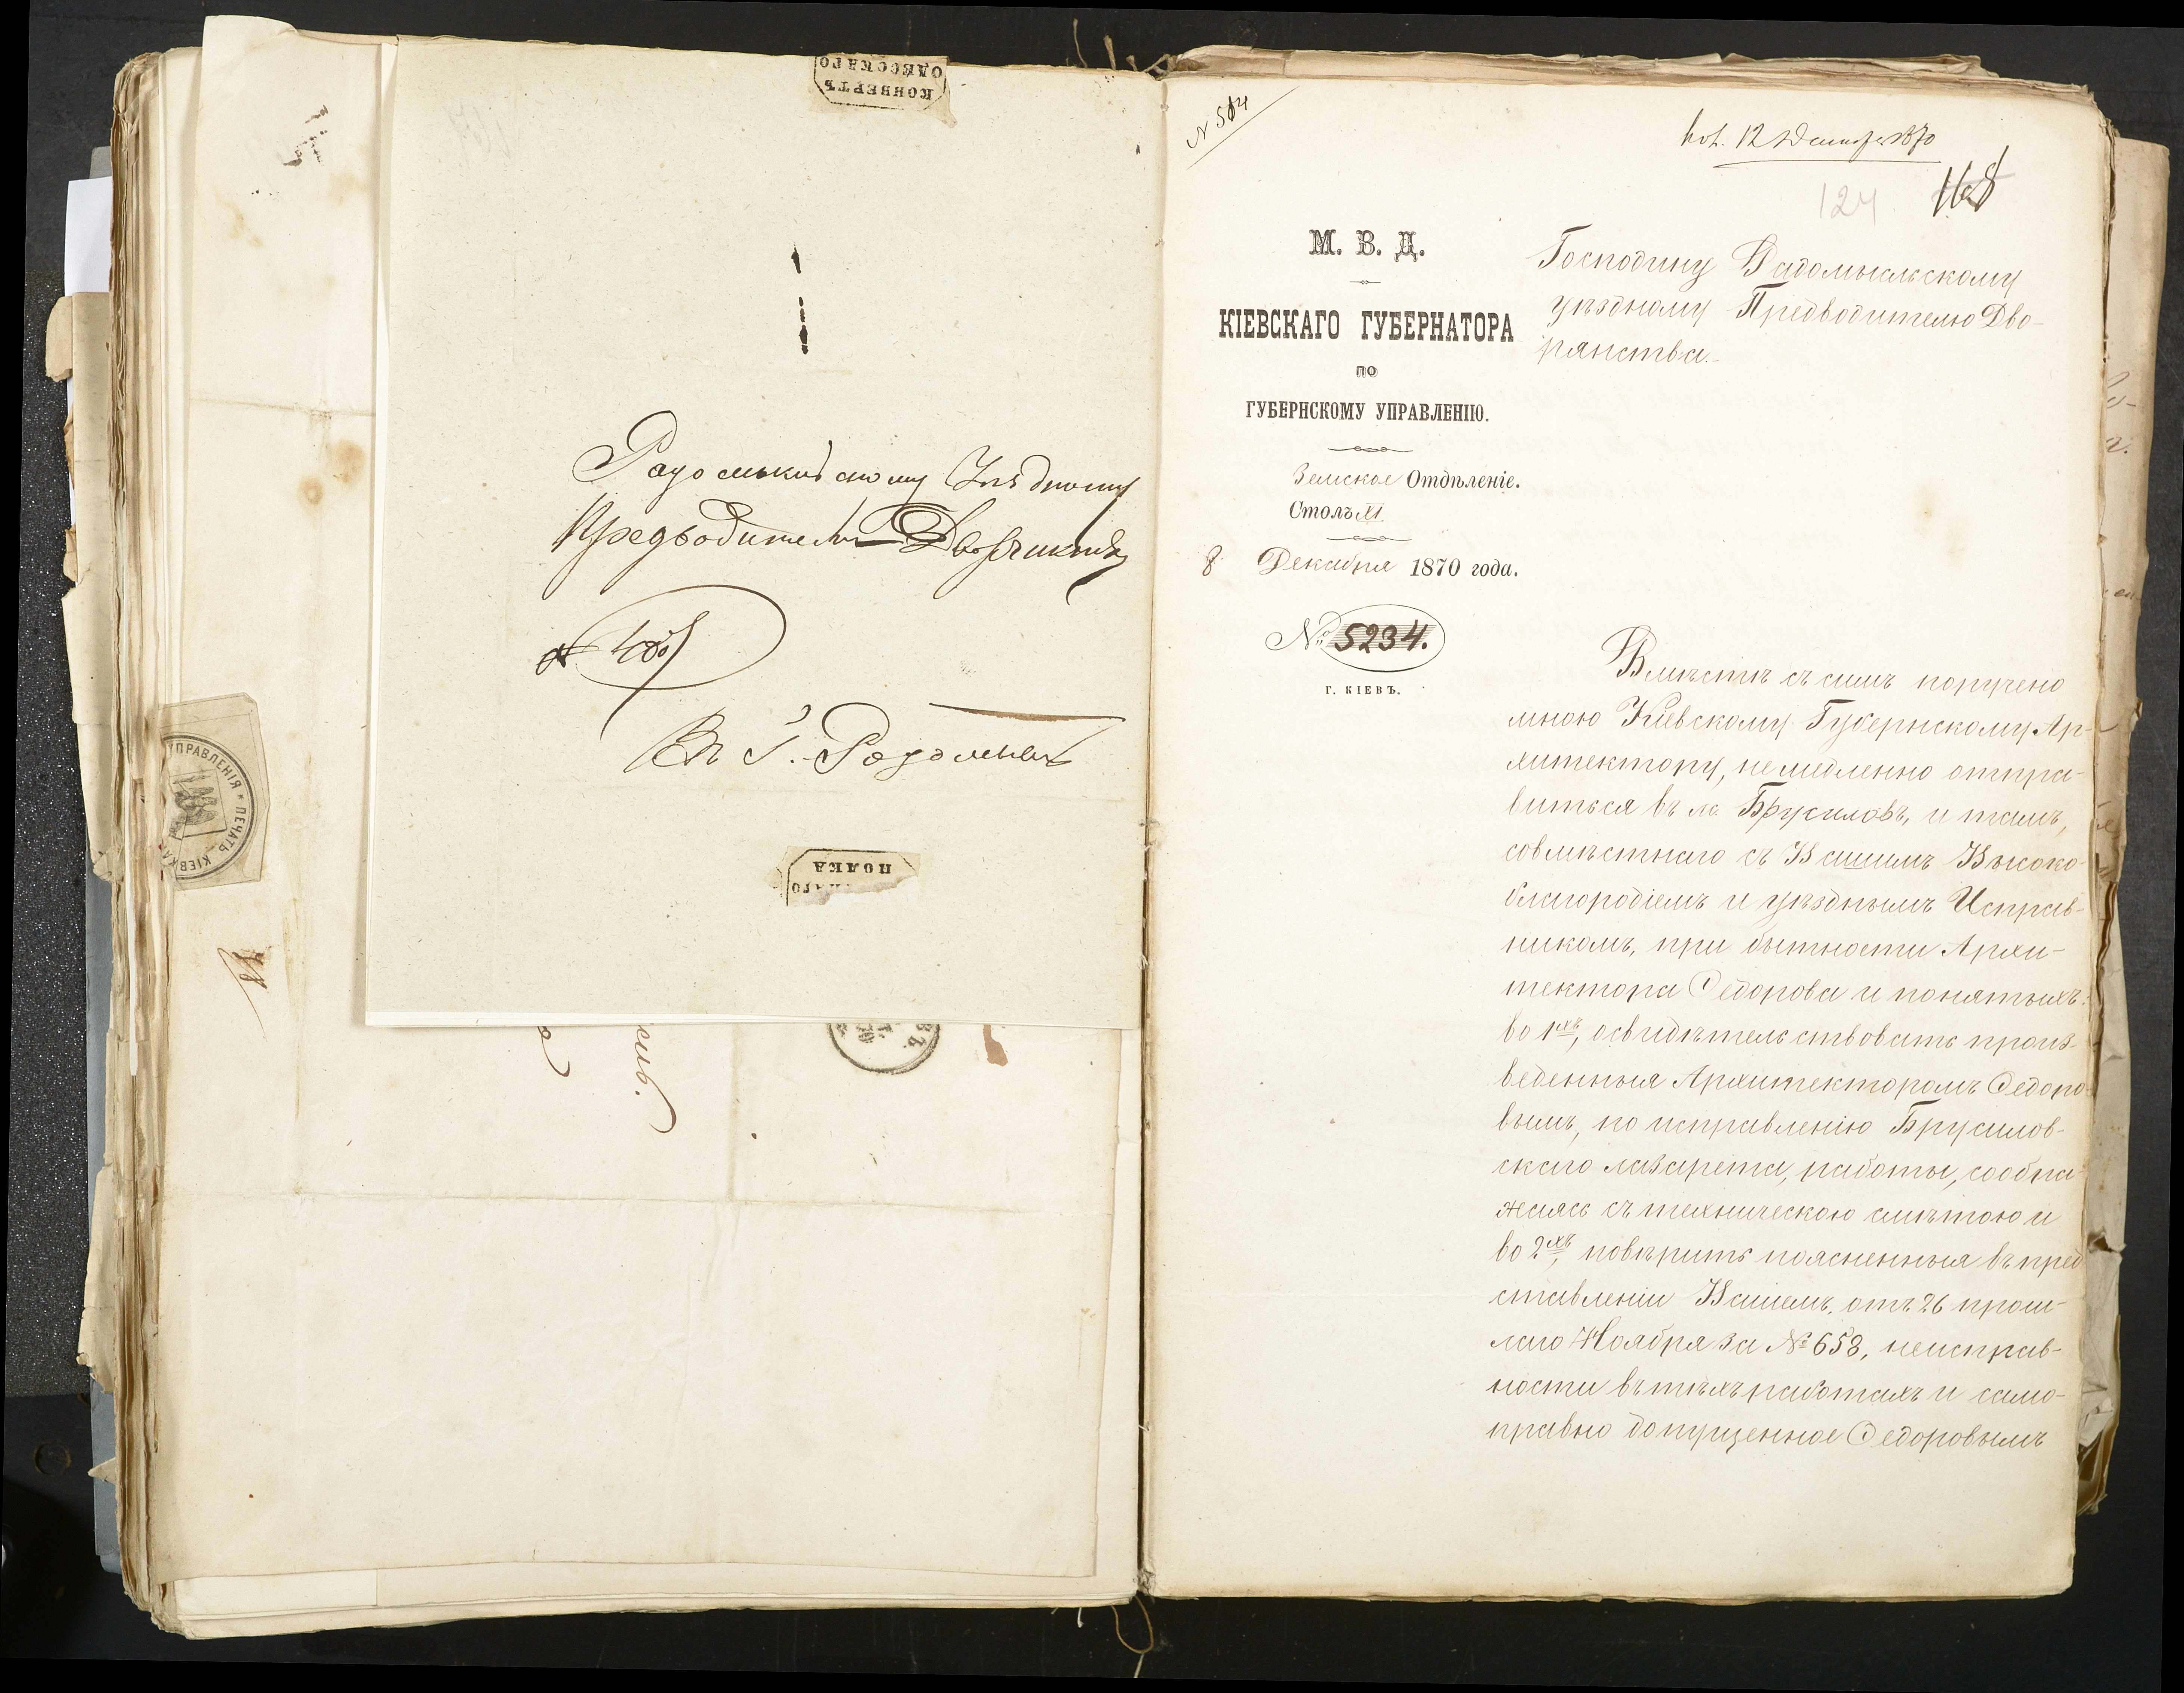 КОНВЕРТЪ
ОДЕССКАГО
Радомысльскому Уѣздному
Предводителю Дворянства
Въ Г. Радомыслѣ
ПОЛКА
УПРАВЛЕНІЯ * ПЕЧАТЬ КІЕВСКА
№ 514
пол. 12 Декабря 1870
124
168
М. В. Д.
КІЕВСКАГО ГУБЕРНАТОРА
ПО
ГУБЕРНСКОМУ УПРАВЛЕНІЮ.
Земское Отдѣленіе.
Столъ XI.
8 Декабря 1870 года.
№ 5234.
Г. КІЕВЪ.
Господину Радомысльскому
уѣздному Предводителю Дво-
рянства.
Вмѣстѣ съ симъ поручено
мною Кіевскому Губернскому Ар-
хитектору, немедленно отпра-
виться въ м. Брусиловъ, и тамъ,
совмѣстнаго съ Вашимъ Высоко-
благородіемъ и уѣзднымъ Исправ-
никомъ, при бытности Архи-
тектора Ѳедорова и понятыхъ:
во 1хъ, освидѣтельствовать произ-
веденныя Архитекторомъ Ѳедоро-
вымъ, по исправленію Брусилов-
скаго лазарета, работы, сообра-
жаясь съ техническою смѣтою и
во 2хъ, повѣрить поясненныя въ пред
ставленіи Вашемъ, отъ 26 прош-
лаго Ноября за № 658, неисправ-
ности въ тѣхъ работахъ и само-
правно допущенное Ѳедоровымъ